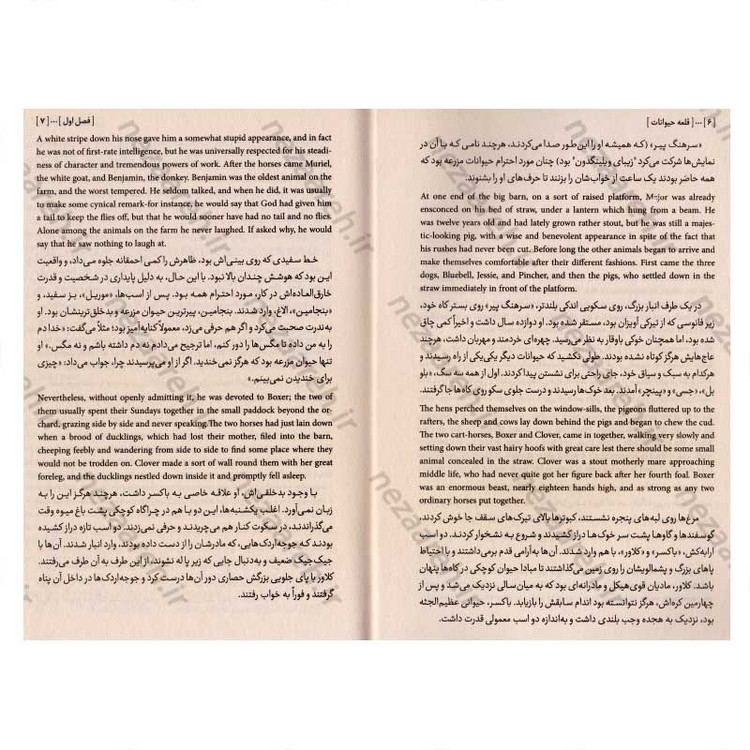 [ ۶ ] ... [ قلعه حیوانات ]
«سرهنگ پیر» (که همیشه او را این‌طور صدا می‌کردند، هرچند نامی که با آن در
نمایش‌ها شرکت می‌کرد "زیبای ویلینگدون" بود) چنان مورد احترام حیوانات مزرعه بود که
همه حاضر بودند یک ساعت از خواب‌شان را بزنند تا حرف‌های او را بشنوند.
At one end of the big barn, on a sort of raised platform, Major was already
ensconced on his bed of straw, under a lantern which hung from a beam. He
was twelve years old and had lately grown rather stout, but he was still a majes-
tic-looking pig, with a wise and benevolent appearance in spite of the fact that
his rushes had never been cut. Before long the other animals began to arrive and
make themselves comfortable after their different fashions. First came the three
dogs, Bluebell, Jessie, and Pincher, and then the pigs, who settled down in the
straw immediately in front of the platform.
در یک طرف انبار بزرگ، روی سکویی اندکی بلندتر، «سرهنگ پیر» روی بستر کاه خود،
زیر فانوسی که از تیرکی آویزان بود، مستقر شده بود. او دوازده سال داشت و اخیراً کمی چاق
شده بود، اما همچنان خوکی باوقار به نظر می‌رسید. چهره‌ای خردمند و مهربان داشت، هرچند
عاج‌هایش هرگز کوتاه نشده بودند. طولی نکشید که حیوانات دیگر یکی‌یکی از راه رسیدند و
هرکدام به سبک و سیاق خود، جای راحتی برای نشستن پیدا کردند. اول از همه سه سگ، «بلو
بل»، «جسی» و «پینچر» آمدند. بعد خوک‌ها رسیدند و درست جلوی سکو روی کاه‌ها جا گرفتند.
The hens perched themselves on the window-sills, the pigeons fluttered up to the
rafters, the sheep and cows lay down behind the pigs and began to chew the cud.
The two cart-horses, Boxer and Clover, came in together, walking very slowly and
setting down their vast hairy hoofs with great care lest there should be some small
animal concealed in the straw. Clover was a stout motherly mare approaching
middle life, who had never quite got her figure back after her fourth foal. Boxer
was an enormous beast, nearly eighteen hands high, and as strong as any two
ordinary horses put together.
مرغ‌ها روی لبه‌های پنجره نشستند، کبوترها بالای تیرک‌های سقف جا خوش کردند،
گوسفندها و گاوها پشت سر خوک‌ها دراز کشیدند و شروع به نشخوار کردند. دو اسب
ارابه‌کش، «باکسر» و «کلاور»، با هم وارد شدند. آن‌ها به آرامی قدم برمی‌داشتند و با احتیاط
پاهای بزرگ و پشمالویشان را روی زمین می‌گذاشتند تا مبادا حیوان کوچکی در کاه‌ها پنهان
باشد. کلاور، مادیان قوی‌هیکل و مادرانه‌ای بود که به میان‌سالی نزدیک می‌شد و پس از
چهارمین کره‌اش، هرگز نتوانسته بود اندام سابقش را بازیابد. باکسر، حیوانی عظیم‌الجثه
بود، نزدیک به هجده وجب بلندی داشت و به‌اندازه دو اسب معمولی قدرت داشت.
[ فصل اول ] ... [ ۷ ]
A white stripe down his nose gave him a somewhat stupid appearance, and in fact
he was not of first-rate intelligence, but he was universally respected for his steadi-
ness of character and tremendous powers of work. After the horses came Muriel,
the white goat, and Benjamin, the donkey. Benjamin was the oldest animal on the
farm, and the worst tempered. He seldom talked, and when he did, it was usually
to make some cynical remark-for instance, he would say that God had given him
a tail to keep the flies off, but that he would sooner have had no tail and no flies.
Alone among the animals on the farm he never laughed. If asked why, he would
say that he saw nothing to laugh at.
خط سفیدی که روی بینی‌اش بود، ظاهرش را کمی احمقانه جلوه می‌داد، و واقعیت
این بود که هوشش چندان بالا نبود. با این حال، به دلیل پایداری در شخصیت و قدرت
خارق‌العاده‌اش در کار، مورد احترام همه بود. پس از اسب‌ها، «موریل»، بز سفید، و
«بنجامین»، الاغ، وارد شدند. بنجامین، پیرترین حیوان مزرعه و بدخلق‌ترینشان بود. او
به‌ندرت صحبت می‌کرد و اگر هم حرفی می‌زد، معمولاً کنایه‌آمیز بود؛ مثلاً می‌گفت: «خدا دم
را به من داده تا مگس‌ها را دور کنم، اما ترجیح می‌دادم نه دم داشته باشم و نه مگس.» او
تنها حیوان مزرعه بود که هرگز نمی‌خندید. اگر از او می‌پرسیدند چرا، جواب می‌داد: «چیزی
برای خندیدن نمی‌بینم.»
Nevertheless, without openly admitting it, he was devoted to Boxer; the two of
them usually spent their Sundays together in the small paddock beyond the or-
chard, grazing side by side and never speaking.The two horses had just lain down
when a brood of ducklings, which had lost their mother, filed into the barn,
cheeping feebly and wandering from side to side to find some place where they
would not be trodden on. Clover made a sort of wall round them with her great
foreleg, and the ducklings nestled down inside it and promptly fell asleep.
با وجود بدخلقی‌اش، او علاقه خاصی به باکسر داشت، هرچند هرگز این را به
زبان نمی‌آورد. اغلب یکشنبه‌ها، این دو با هم در چراگاه کوچکی پشت باغ میوه وقت
می‌گذراندند، در سکوت کنار هم می‌چریدند و حرفی نمی‌زدند. دو اسب تازه دراز کشیده
بودند که جوجه‌اردک‌هایی، که مادرشان را از دست داده بودند، وارد انبار شدند. آن‌ها با
جیک‌جیک ضعیف و به‌دنبال جایی که زیر پا له نشوند، از این طرف به آن طرف می‌رفتند.
کلاور با پای جلویی بزرگش حصاری دور آن‌ها درست کرد و جوجه‌اردک‌ها در داخل آن پناه
گرفتند و فوراً به خواب رفتند.
nezaafeh.ir